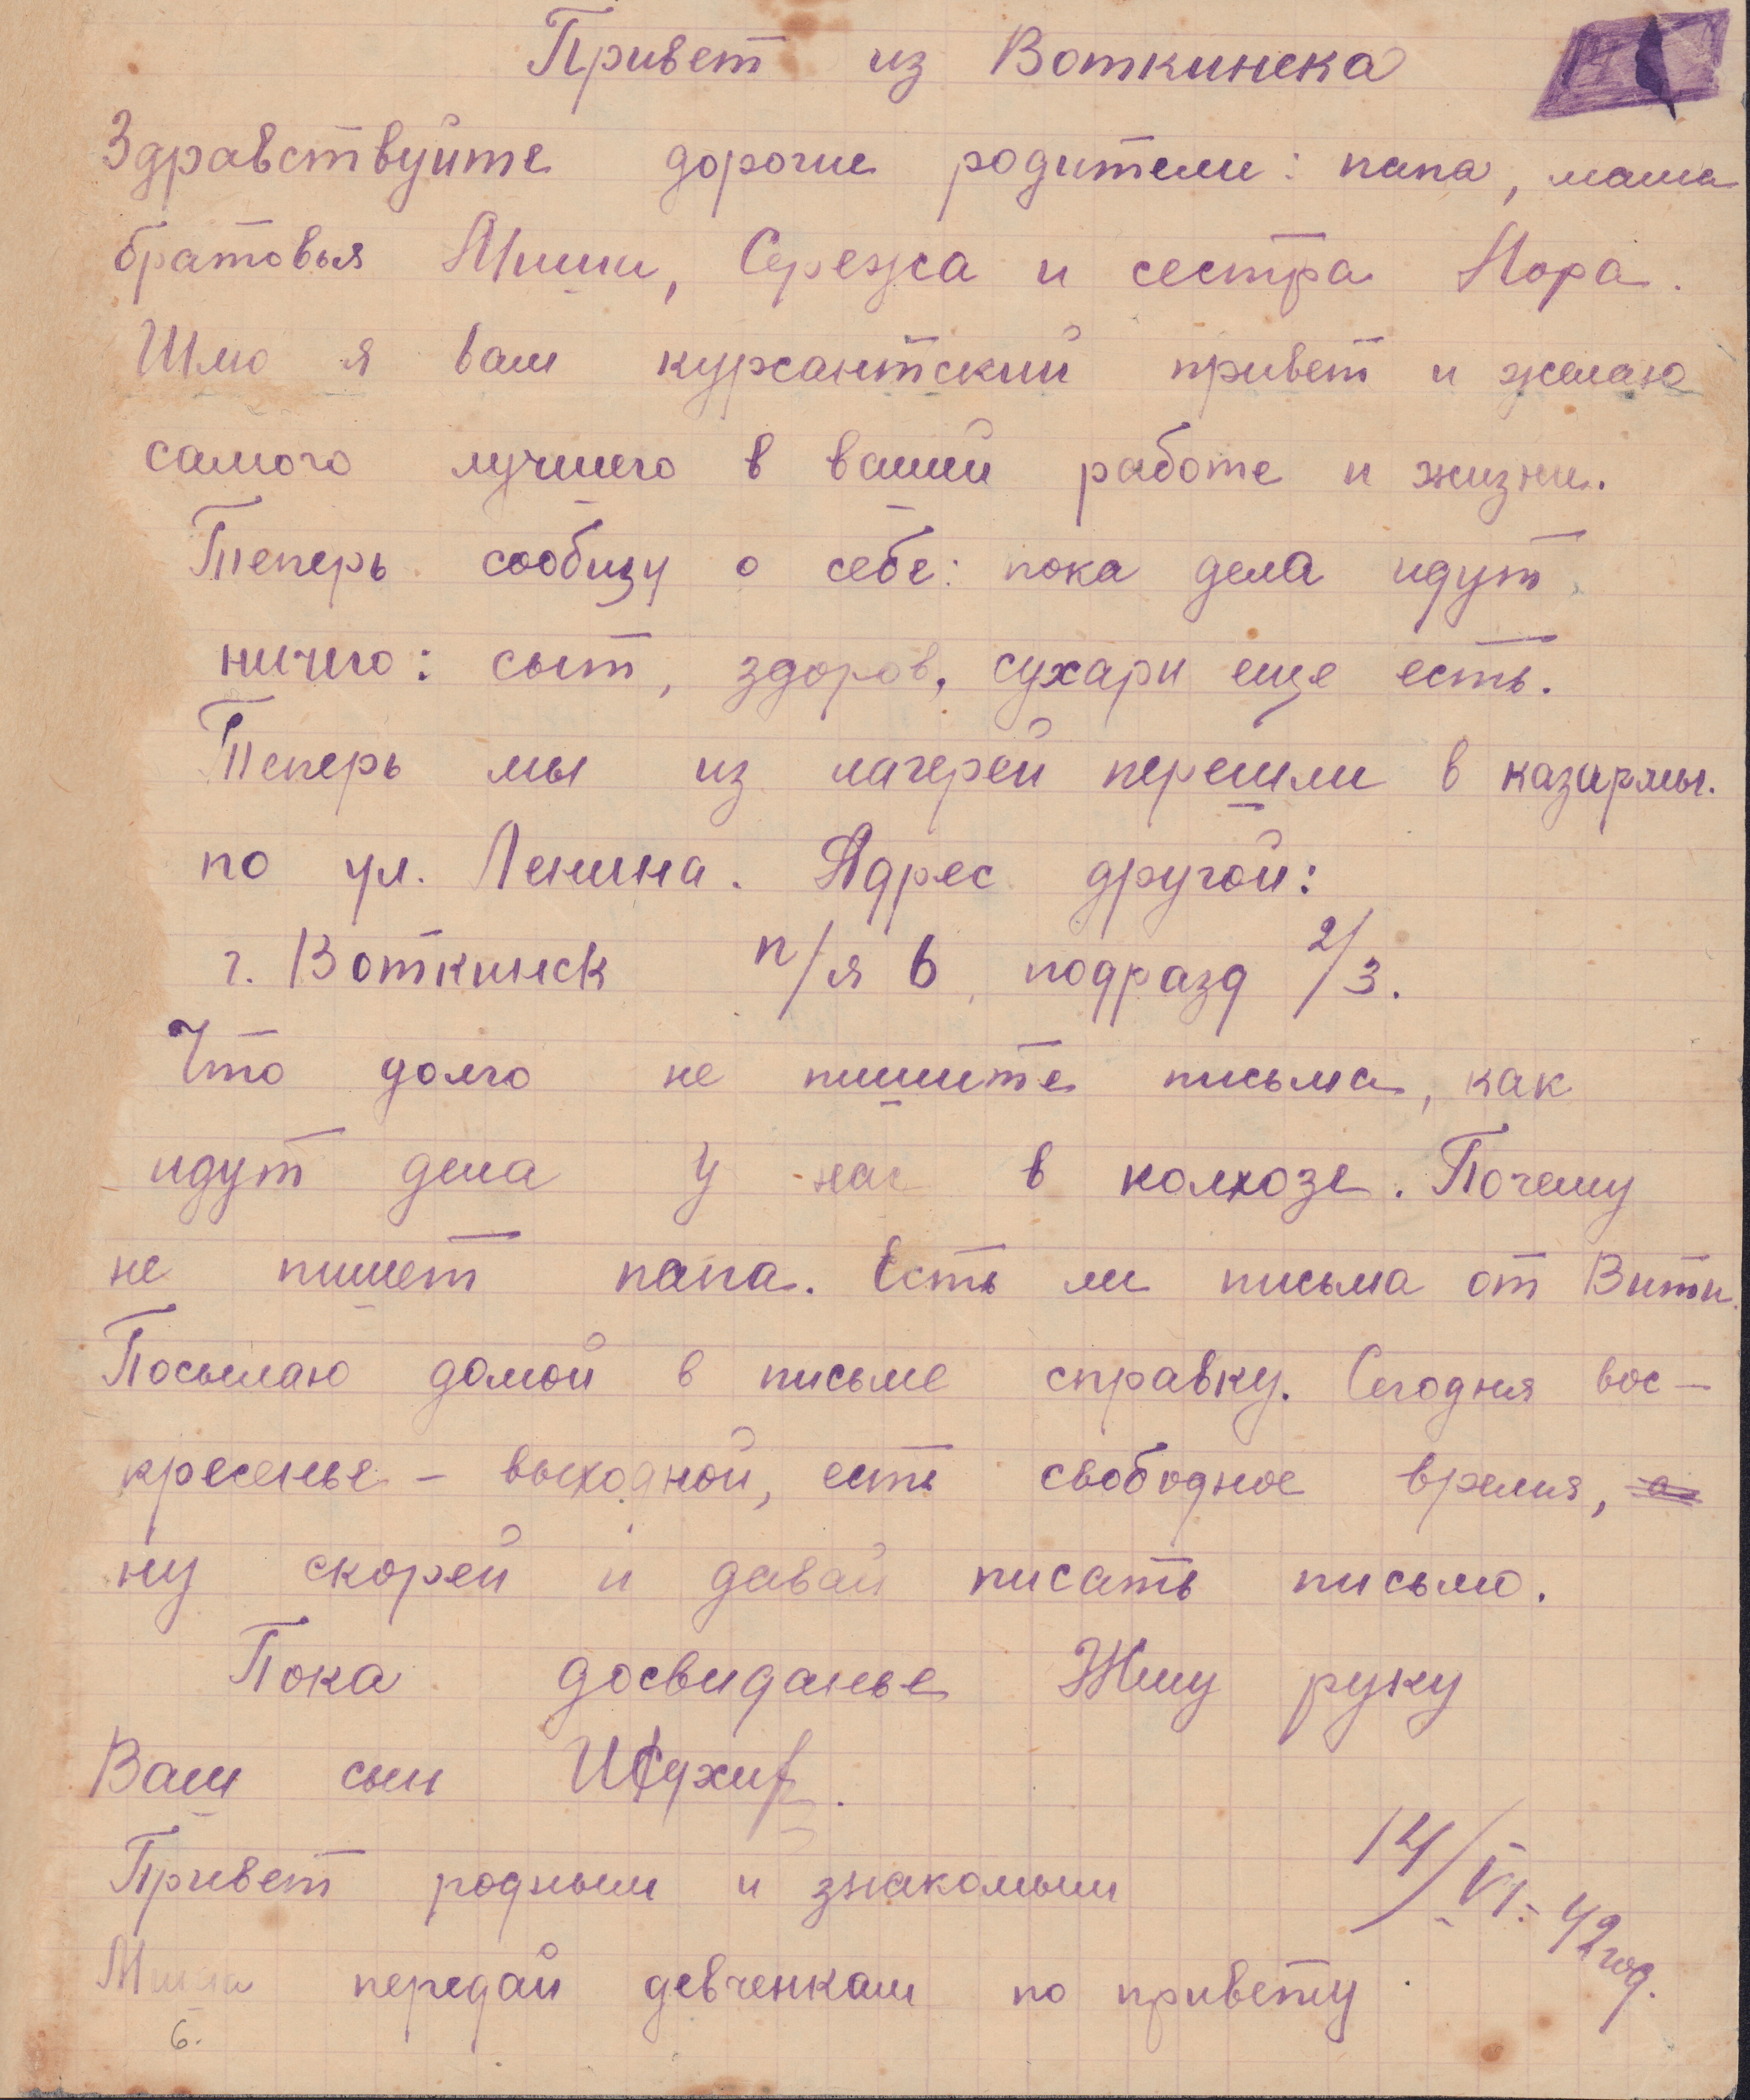 Привет из Воткинска
Здравствуйте дорогие родители: папа, мама
братовья Миша, Сережа и сестра Нора.
Шлю я вам курсантский привет и желаю
самого лучшего в вашей работе и жизни.
Теперь сообщу о себе: пока дела идут
ничего: сыт, здоров, сухари еще есть.
Теперь мы из лагерей перешли в казармы.
по ул. Ленина. Адрес другой:
г. Воткинск п/я 6, подразд 2/3.
Что долго не пишите письма, как
идут дела у нас в колхозе. Почему
не пишет папа. Есть ли письма от Вити.
Посылаю домой в письме справку. Сегодня вос-
кресенье – выходной, есть свободное время, а
ну скорей и давай писать письмо.
Пока досвиданье Жму руку
Ваш сын
Привет родным и знакомым
14/VI-42 год.
Миша передай девченкам по привету
6.